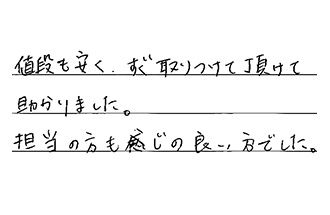 値段も安く、すぐ取りつけて頂けて
助かりました。
担当の方も感じの良い方でした。